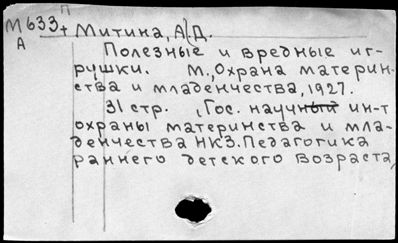 П
М633+ Митина, А.Д.
А
Полезные и вредные иг-
рушки. М., Охрана материн-
ства и младенчества, 1927.
31 стр. (Гос. научный ин-т
охраны материнства и мла-
денчества НКЗ. Педагогика
раннего детского возраста,